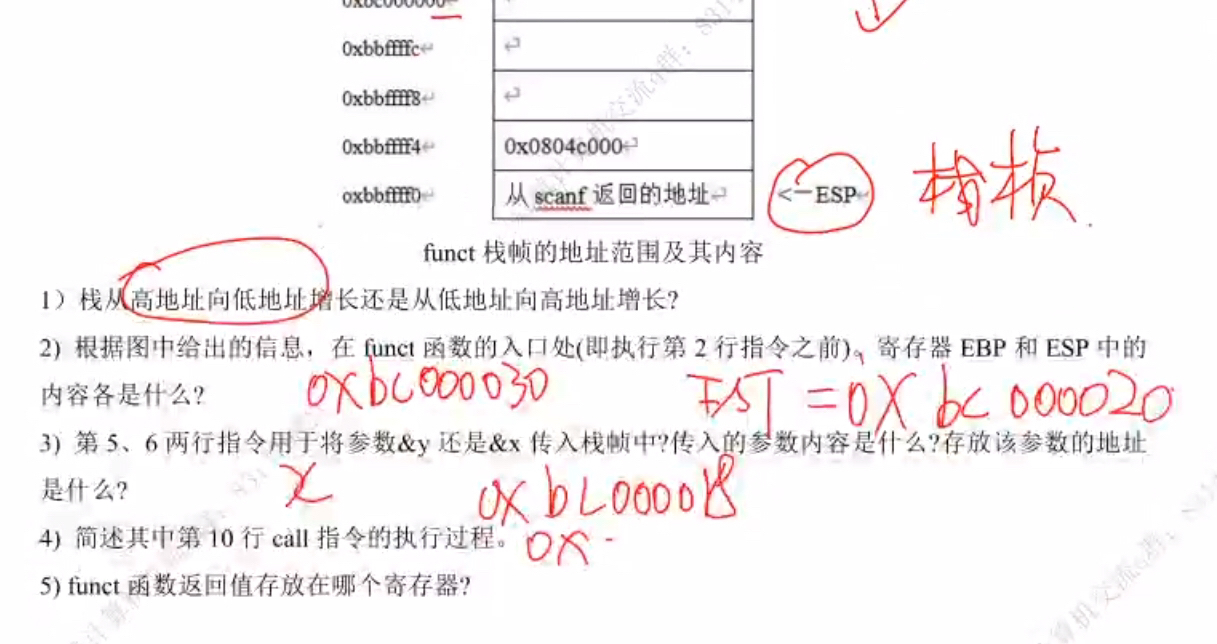 0xbc000000
0xbbffffc
0xbbffff8
0xbbffff4 0x0804c000
oxbbffff0 从 scanf 返回的地址 <—ESP 栈桢
funct 栈帧的地址范围及其内容
1）栈从高地址向低地址增长还是从低地址向高地址增长?
2) 根据图中给出的信息，在 funct 函数的入口处(即执行第 2 行指令之前)。寄存器 EBP 和 ESP 中的
内容各是什么? 0xbc000030 = 0X bc 000020
3) 第 5、6 两行指令用于将参数&y 还是&x 传入栈帧中?传入的参数内容是什么?存放该参数的地址
是什么? x
4) 简述其中第 10 行 call 指令的执行过程。 0x
5) funct 函数返回值存放在哪个寄存器?